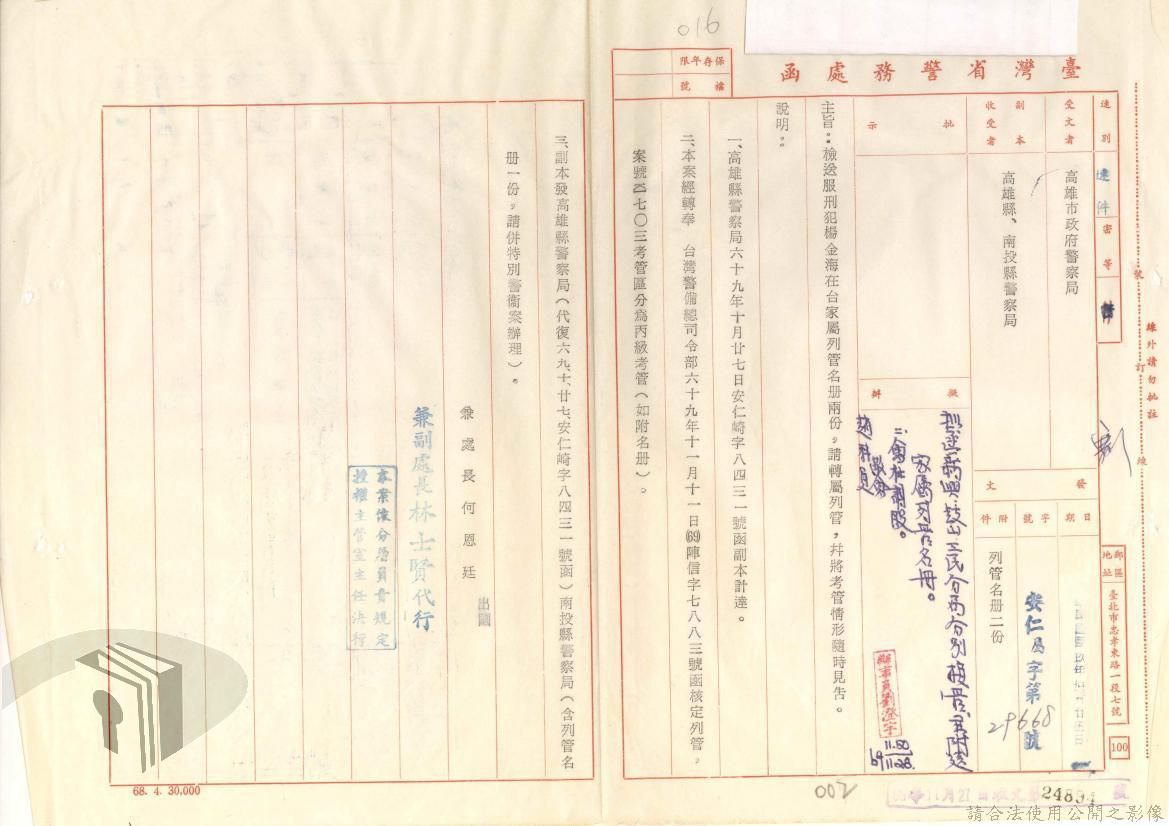 016
臺灣省警務處函
保存年限
檔號
速別
速件
密等
受文者
高雄市政府警察局
副本收受者
高雄縣、南投縣警察局
發文
日期
字號
安仁字第
29668
號
附件
列管名册二份
批示
擬辦
家屬列管名冊。
辦事員劉澄宇
11.28
主旨：檢送服刑犯楊金海在台家屬列管名册兩份，請轉屬列管，并將考管情形隨時見告。
說明：
一、高雄縣警察局六十九年十月廿七日安仁崎字八四三一號函副本計達。
二、本案經轉奉 台灣警備總司令部六十九年十一月十一日(69)陣信字七八八三號函核定列管，
七〇三考管區分爲丙級考管（如附名册）。
三、副本發高雄縣警察局（代復六九、十、廿七、安仁崎字八四三一號函）南投縣警察局（含列管名
册一份，請併特別警衞案辦理）。
兼處長何恩廷
出國
兼副處長林士賢代行
本案依分層負責規定
授權主管室主任決行
郵區
地址
臺北市忠孝東路一段七號
100
裝
訂
線
線外請勿批註
68. 4. 30,000
002
11月27日收文
號
請合法使用公開之影像